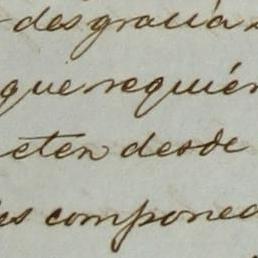 desgracia
que requier
eten desde
es componed